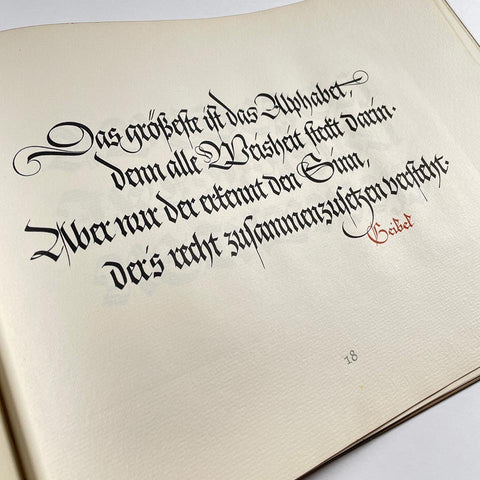 Das größeste ist das Alphabet,
denn alle Weisheit steckt darin.
Aber nur der erkennt den Sinn,
Der's recht zusammenzusetzen versteht.
Geibel
18